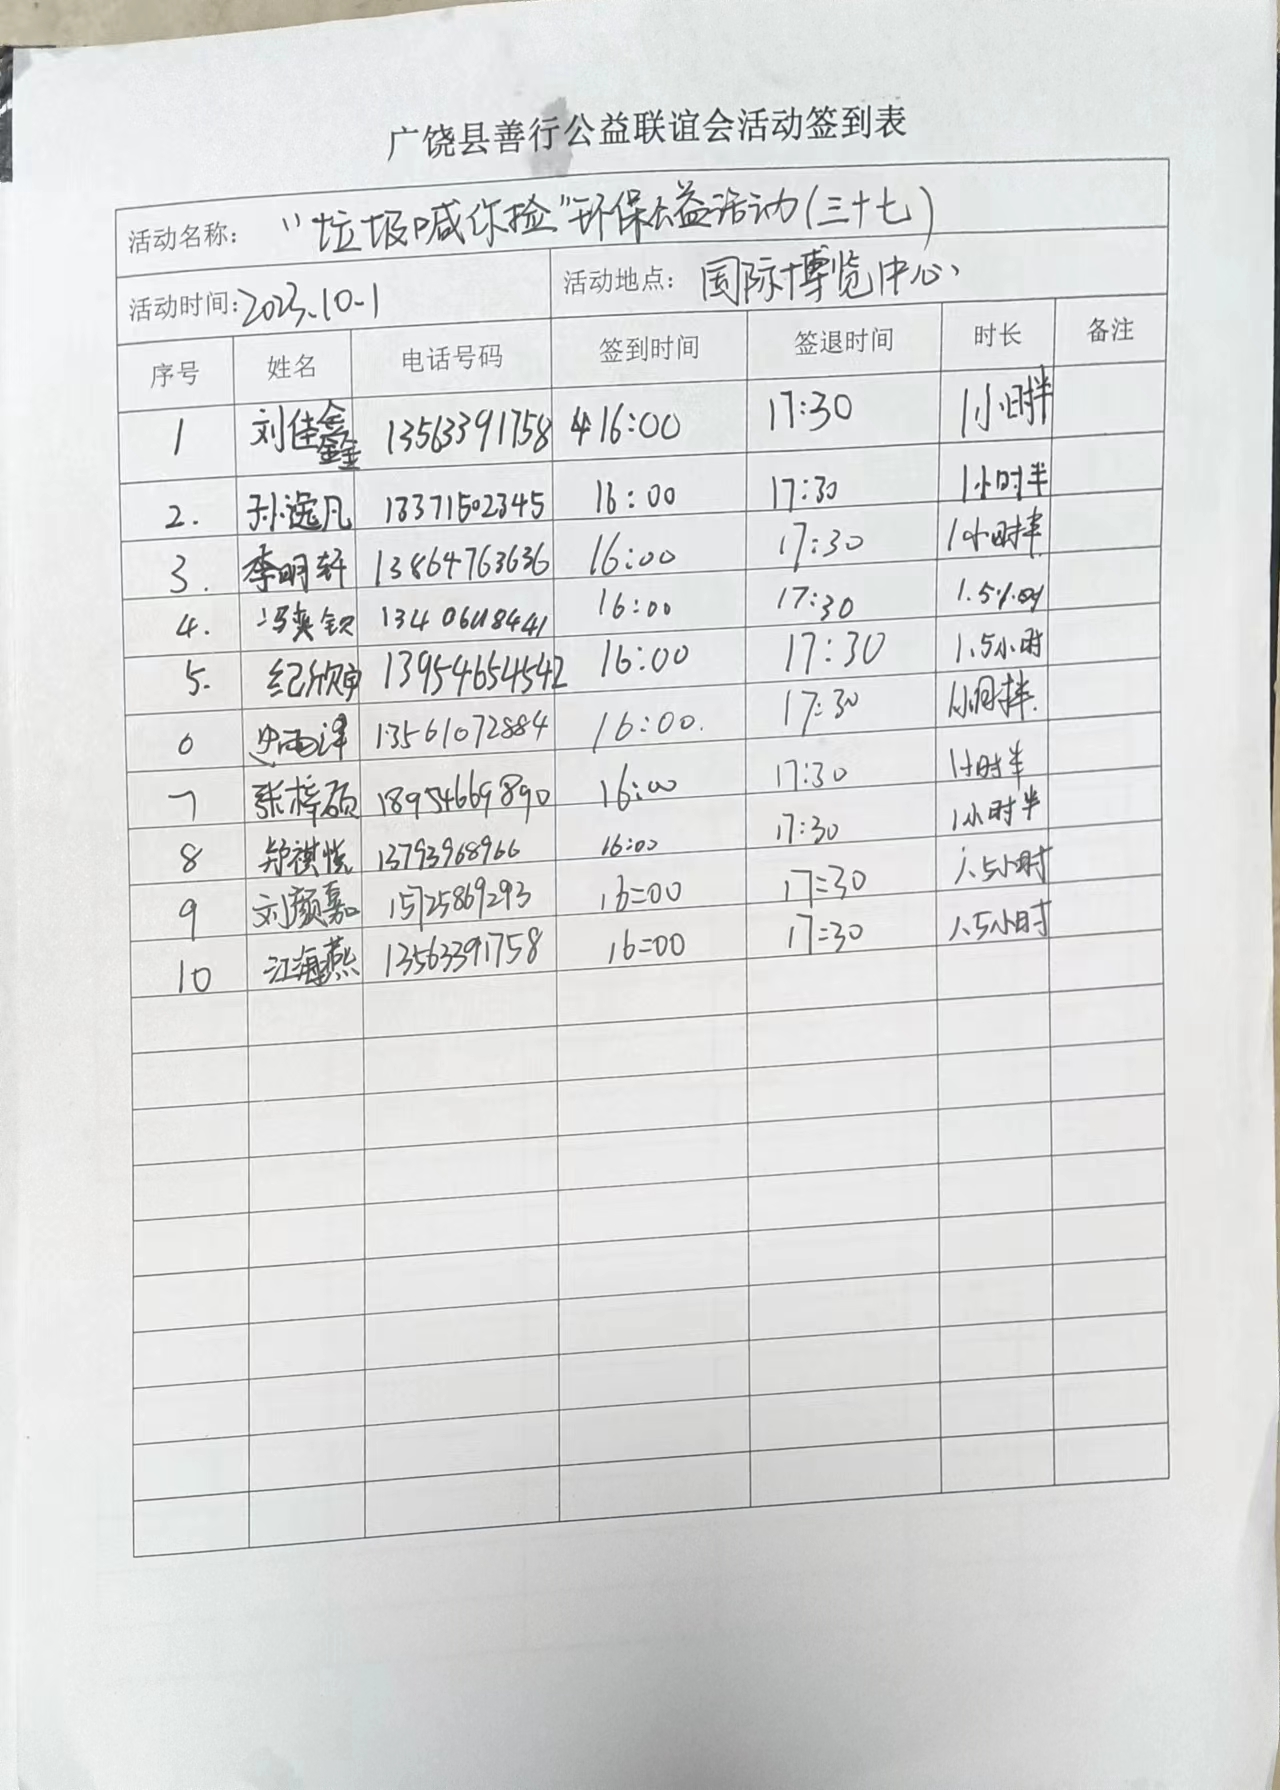 广饶县善行公益联谊会活动签到表
活动名称： “垃圾喊你捡”环保公益活动(三十七)
活动时间: 2023.10.1 活动地点： 国际博览中心
序号 姓名 电话号码 签到时间 签退时间 时长 备注
1 刘佳鑫 13563391758 16:00 17:30 1小时半
2. 孙逸凡 13371502345 16:00 17:30 1小时半
3. 李明轩 13864763636 16:00 17:30 1小时半
4. 16:00 17:30 1.5小时
5. 13954654542 16:00 17:30 1.5小时
6 史雨泽 13561072884 16:00. 17:30 1小时半.
7 张梓硕 18954669890 16:00 17:30 1小时半
8 郑祺悦 13793968966 16:00 17:30 1小时半
9 刘颜嘉 15725869293 16:00 17:30 1.5小时
10 江海燕 13563391758 16:00 17:30 1.5小时